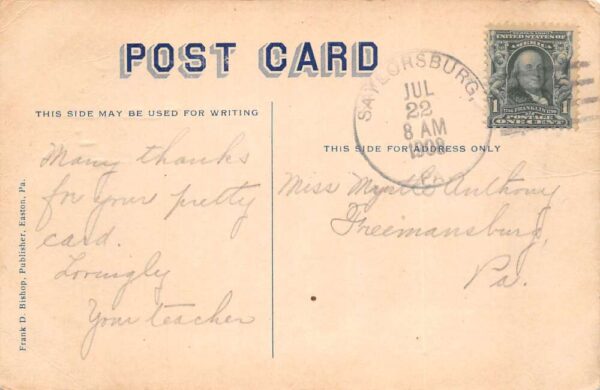 POST CARD
THIS SIDE MAY BE USED FOR WRITING
Many thanks
for your pretty
card.
Lovingly
Your teacher
Frank D. Bishop, Publisher, Easton, Pa.
SAYLORSBURG,
JUL
22
8 AM
1908
PA.
UNITED STATES OF
AMERICA
FRANKLIN
1 1
POSTAGE
ONE CENT
THIS SIDE FOR ADDRESS ONLY
Miss Myrtle Anthony
Freemansburg,
Pa.